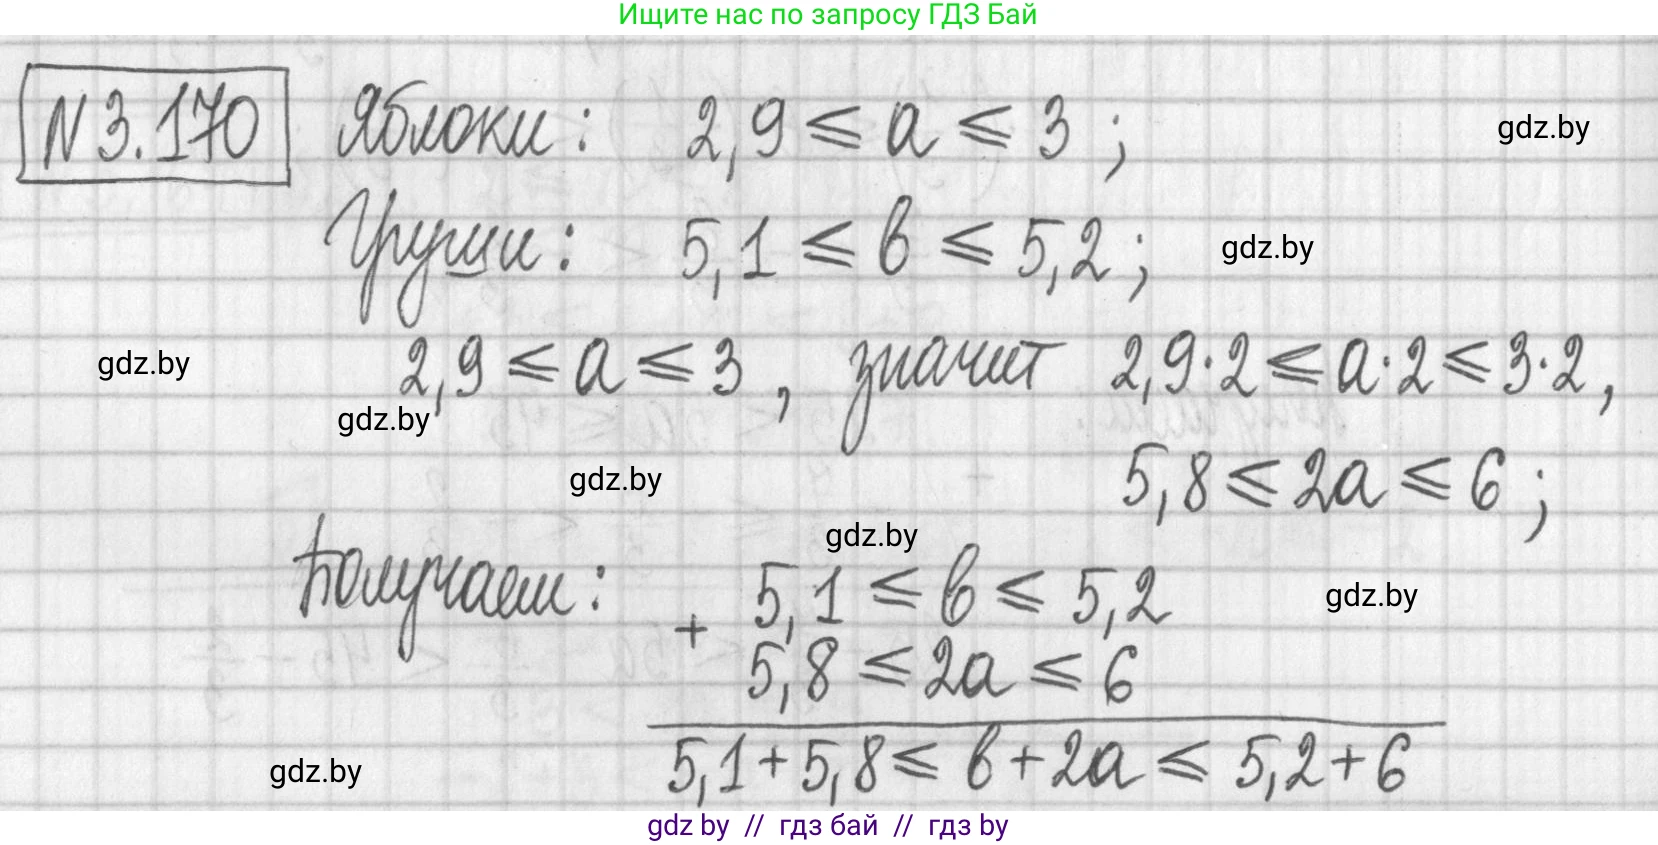 Ищите нас по запросу ГДЗ Бай
N 3.170 Яблоки: 2,9 ⩽ a ⩽ 3 ; gdz.by
Груши: 5,1 ⩽ b ⩽ 5,2 ; gdz.by
gdz.by 2,9 ⩽ a ⩽ 3 , значит 2,9·2 ⩽ a·2 ⩽ 3·2 ,
gdz.by
gdz.by 5,8 ⩽ 2a ⩽ 6 ;
gdz.by
Получаем: + 5,1 ⩽ b ⩽ 5,2 gdz.by
5,8 ⩽ 2a ⩽ 6
gdz.by 5,1+5,8 ⩽ b+2a ⩽ 5,2+6
gdz by // гдз бай // гдз by